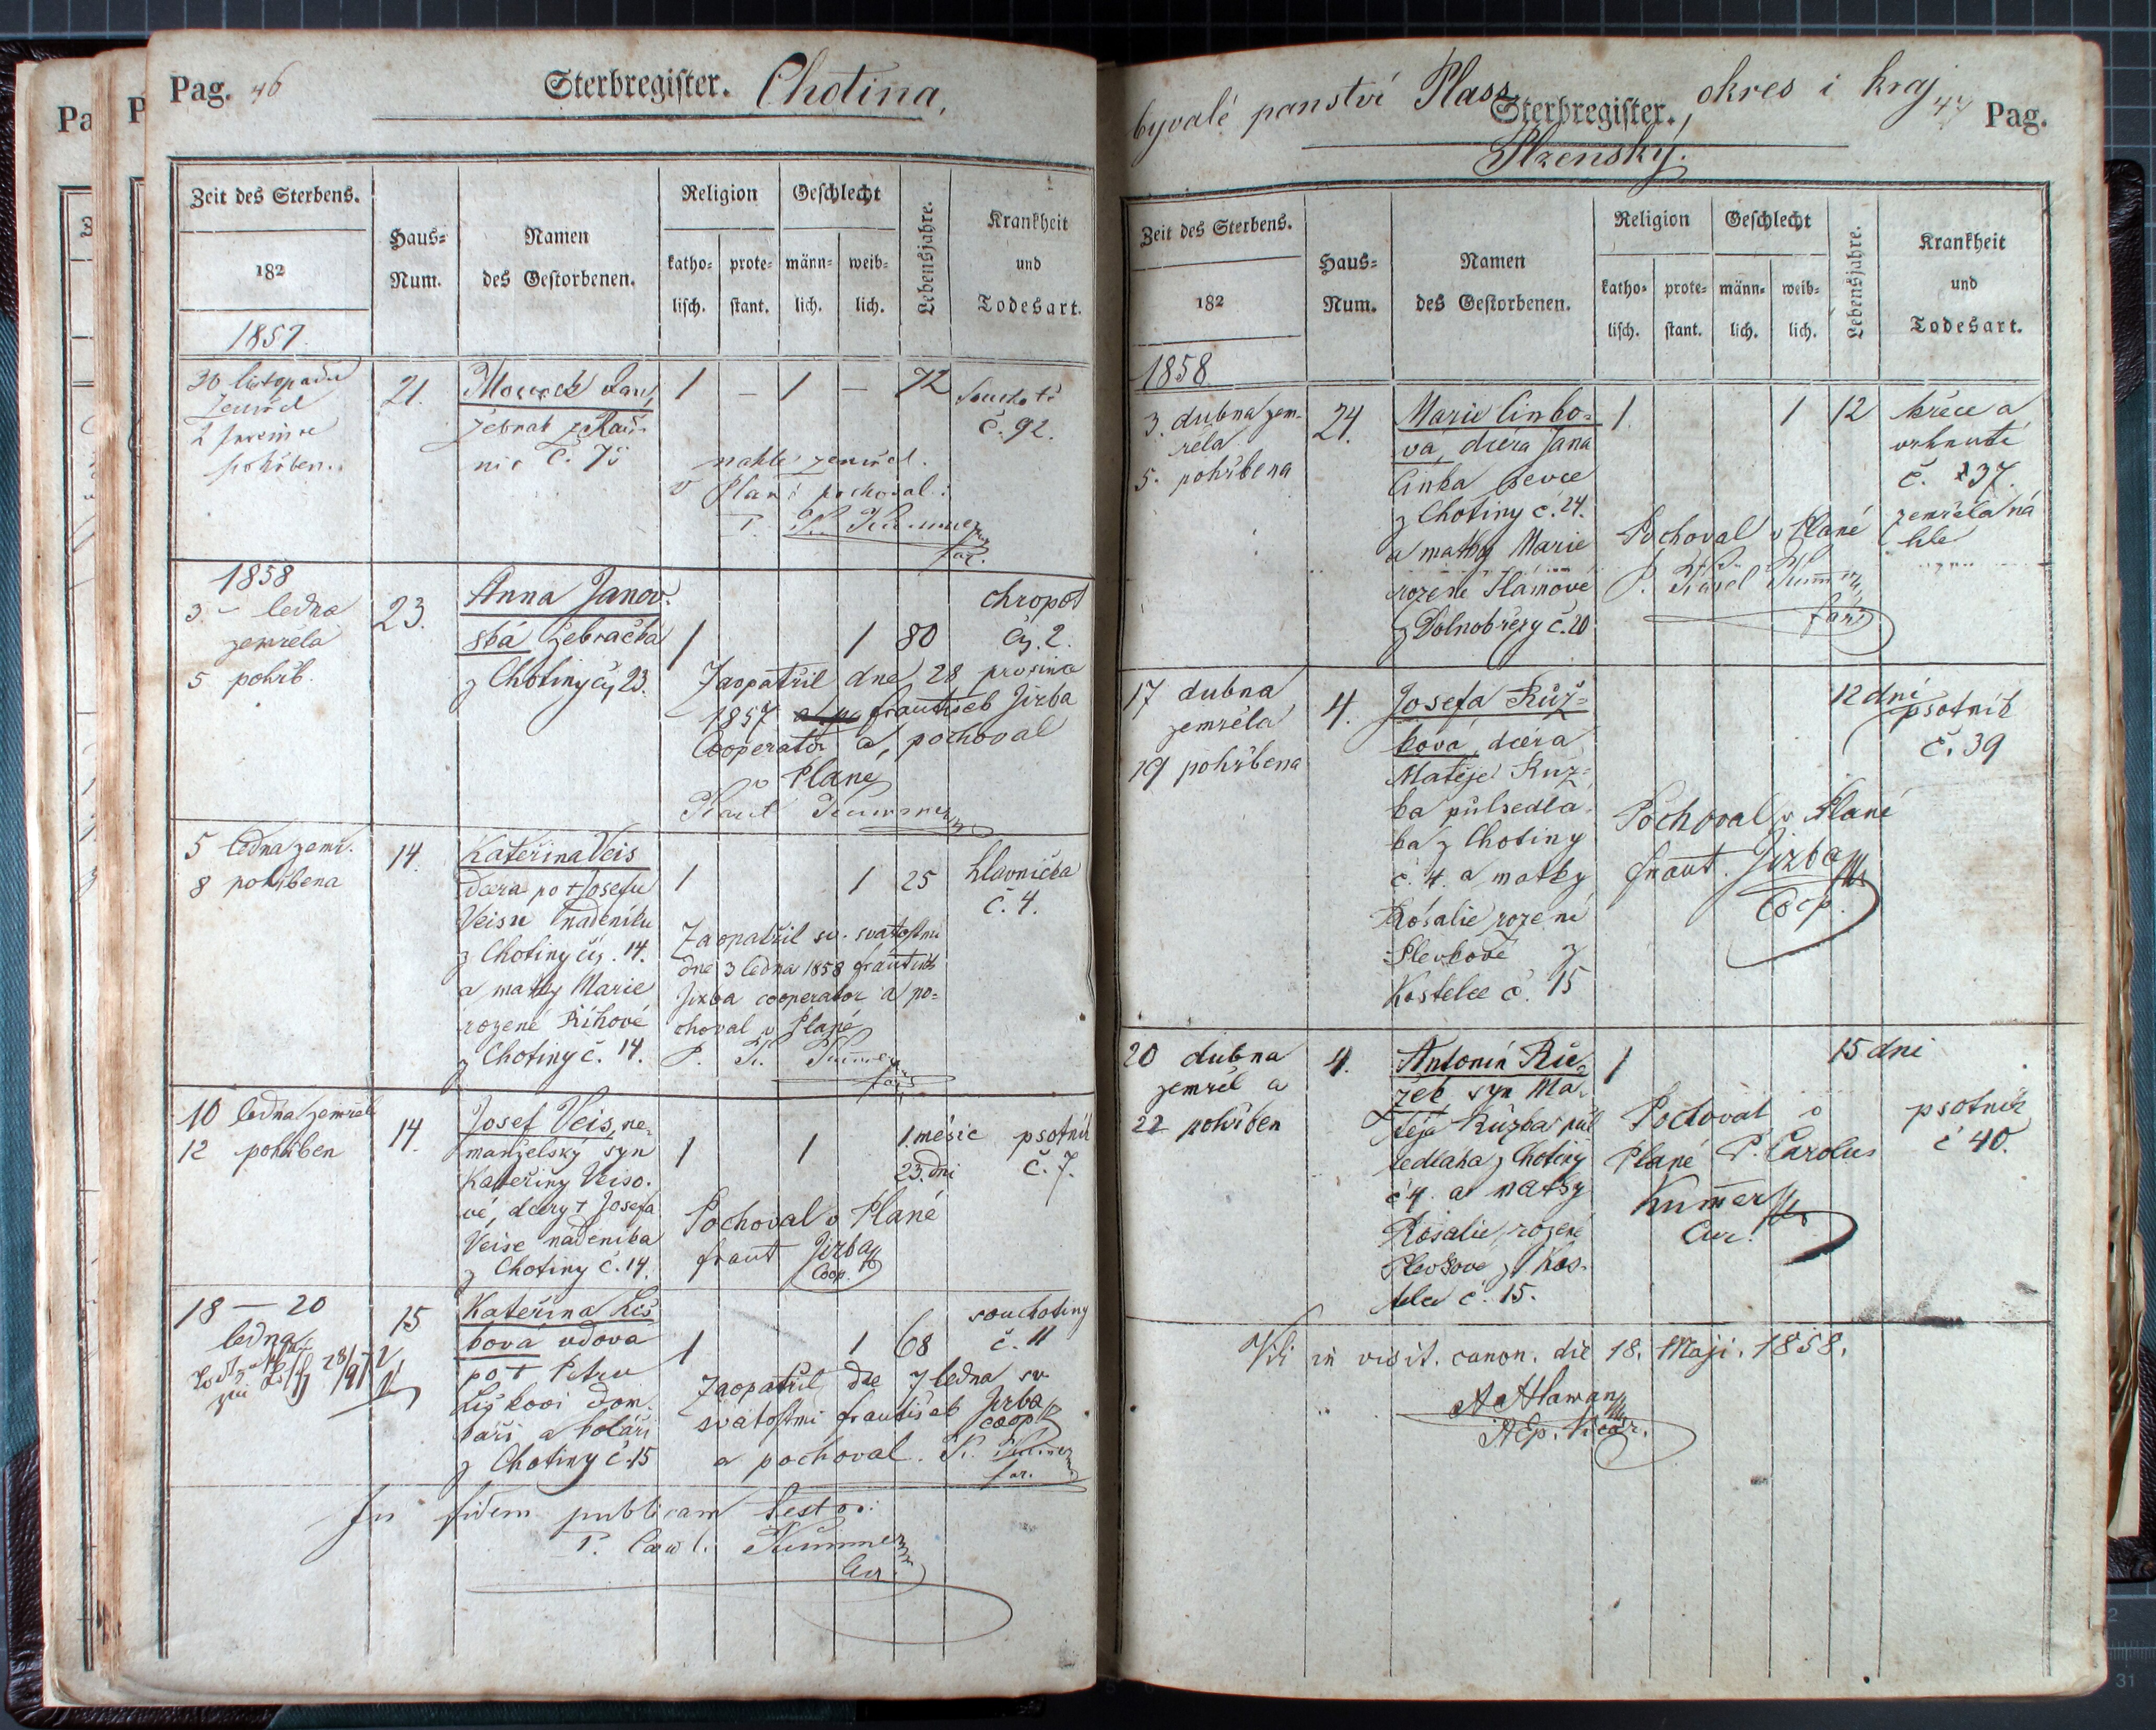 Pag. 46
Sterbregister. Chotina,
Zeit des Sterbens.
182
1857.
Haus-
Num.
Namen
des Gestorbenen.
Religion
katho-
lisch.
prote-
stant.
Geschlecht
männ-
lich.
weib-
lich.
Lebensjahre.
Krankheit
und
Todesart.
30 listopadu
zemřel
2 prosince
pohřben.
21.
Jan,
žebrák z
č. 75
1 – 1 – 72
Souchotě
č. 92.
náhle zemřel.
v Plané pochoval:
P. K. Kummer
far.
1858
3 – ledna
zemřela
5 pohřb.
23.
Anna Janov-
ská žebračka
z Chotiny čís. 23.
1 1 80
chropot
čís. 2.
Zaopatřil dne 28 prosince
1857 František Jirba
Cooperator a pochoval
v Plané
Karel Kummer
5 ledna zemř.
8 pohřbena
14.
Kateřina Veis
dcera po + Josefu
Veisu nádeníku
z Chotiny čís. 14.
a matky Marie
rozené Říhové
z Chotiny č. 14.
1 1 25
hlavnička
č. 4.
Zaopatřil sv. svátostmi
dne 3 ledna 1858 František
Jirba cooperator a po-
choval v Plané
P. K. Kummer
far.
10 ledna zemřel
12 pohřben
14.
Josef Veis, ne-
manželský syn
Kateřiny Veiso-
vé, dcery + Josefa
Veise nádeníka
z Chotiny č. 14.
1 1
1. měsíc
23. dní
psotník
č. 7.
Pochoval v Plané
Frant Jirba
Coop.
18 – 20
ledna
28/
15
Kateřina Liš
ková vdova
po + Petru
Liškovi dom-
káři a koláři
z Chotiny č. 15
1 1 68
souchotiny
č. 11
Zaopatřil dne 7 ledna sv
svátostmi František Jirba
coop
a pochoval. K. Kummer
far.
In fidem publicam testor:
P. Carol. Kummer
Cur.
bývalé panství Plass, okres i kraj
Sterbregister.
Plzenský.
47 Pag.
Zeit des Sterbens.
182
1858
Haus-
Num.
Namen
des Gestorbenen.
Religion
katho-
lisch.
prote-
stant.
Geschlecht
männ-
lich.
weib-
lich.
Lebensjahre.
Krankheit
und
Todesart.
3. dubna zem-
řela
5. pohřbena
24.
Marie Cinko-
vá, dcera Jana
Cinka ševce
z Chotiny č. 24.
a matky Marie
rozené Slámové
z Dolnobřezy č. 20
1. 1 12
křeče a
vrhnutí
č. 37.
zemřela ná
hle
Pochoval v Plané
P. Karel Kummer
farář
17 dubna
zemřela
19 pohřbena
4.
Josefa Růž-
ková, dcera
Matěje Růž-
ka půlsedlá-
ka z Chotiny
č. 4. a matky
Rosalie rozené
Plevkové z
Kostelce č. 15
12 dní
psotník
č. 39
Pochoval v Plané
Frant. Jirba
Coop.
20 dubna
zemřel a
22 pohřben
4.
Antonín Rů-
žek syn Ma-
těje Růžka půl
sedláka z Chotiny
č 4. a matky
Rosalie rozené
Plevkové z Kos-
telce č. 15.
1
15 dní
psotník
č 40.
Pochoval v
Plané P. Carolus
Kummer
Cur.
Vidi in visit. canon. die 18. Maji. 1858.